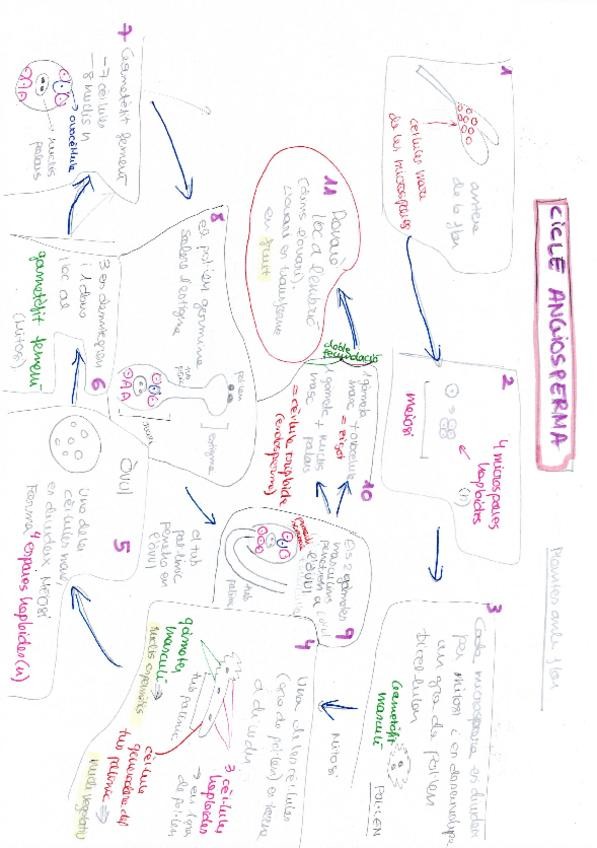 CICLE ANGIOSPERMA
Plantes amb flor
1
antera
de la flor
cèl·lules mare
de les microspores
2
4 microspores
haploides
(n)
meiosi
3
Cada microspora es divideix
per mitosi i es desenvolupa
un gra de pol·len
bicel·lular
Gametòfit
masculí
POL·LEN
Mitosi
4
Una de les cèl·lules
(gra de pol·len) es torna
a dividir
3 cèl·lules
haploides
→ en 1 gra
de pol·len
tub pol·línic
gàmetes
masculí ⇒
nuclis espermàtics
cèl·lula
generadora del
tub pol·línic ⇒
nucli vegetatiu
5
Òvul
Una de les
cèl·lules mare,
es divideix MEIOSI
Forma 4 espores haploides (n)
6
3 es desintegren
i 1 dona
lloc al
gametòfit femení
(mitosi)
7 Gametòfit femení
-7 cèl·lules
-8 nuclis n
→ ovocèl·lula
nuclis
polars
8
el pol·len germina
sobre l'estigma
pol·len
tub
estigma
el tub
pol·línic
penetra en
l'òvul
9
Els 2 gàmetes
masculins
penetren a
l'òvul
tub
pol·línic
10
1 gàmeta
masc + ovocèl·lula
= zigot
1 gàmeta + nuclis
masc polars
= cèl·lula triploide
(endosperma)
doble
fecundació
11
Donarà
lloc a l'embrió
(dins l'ovari).
L'ovari es transforma
en fruit